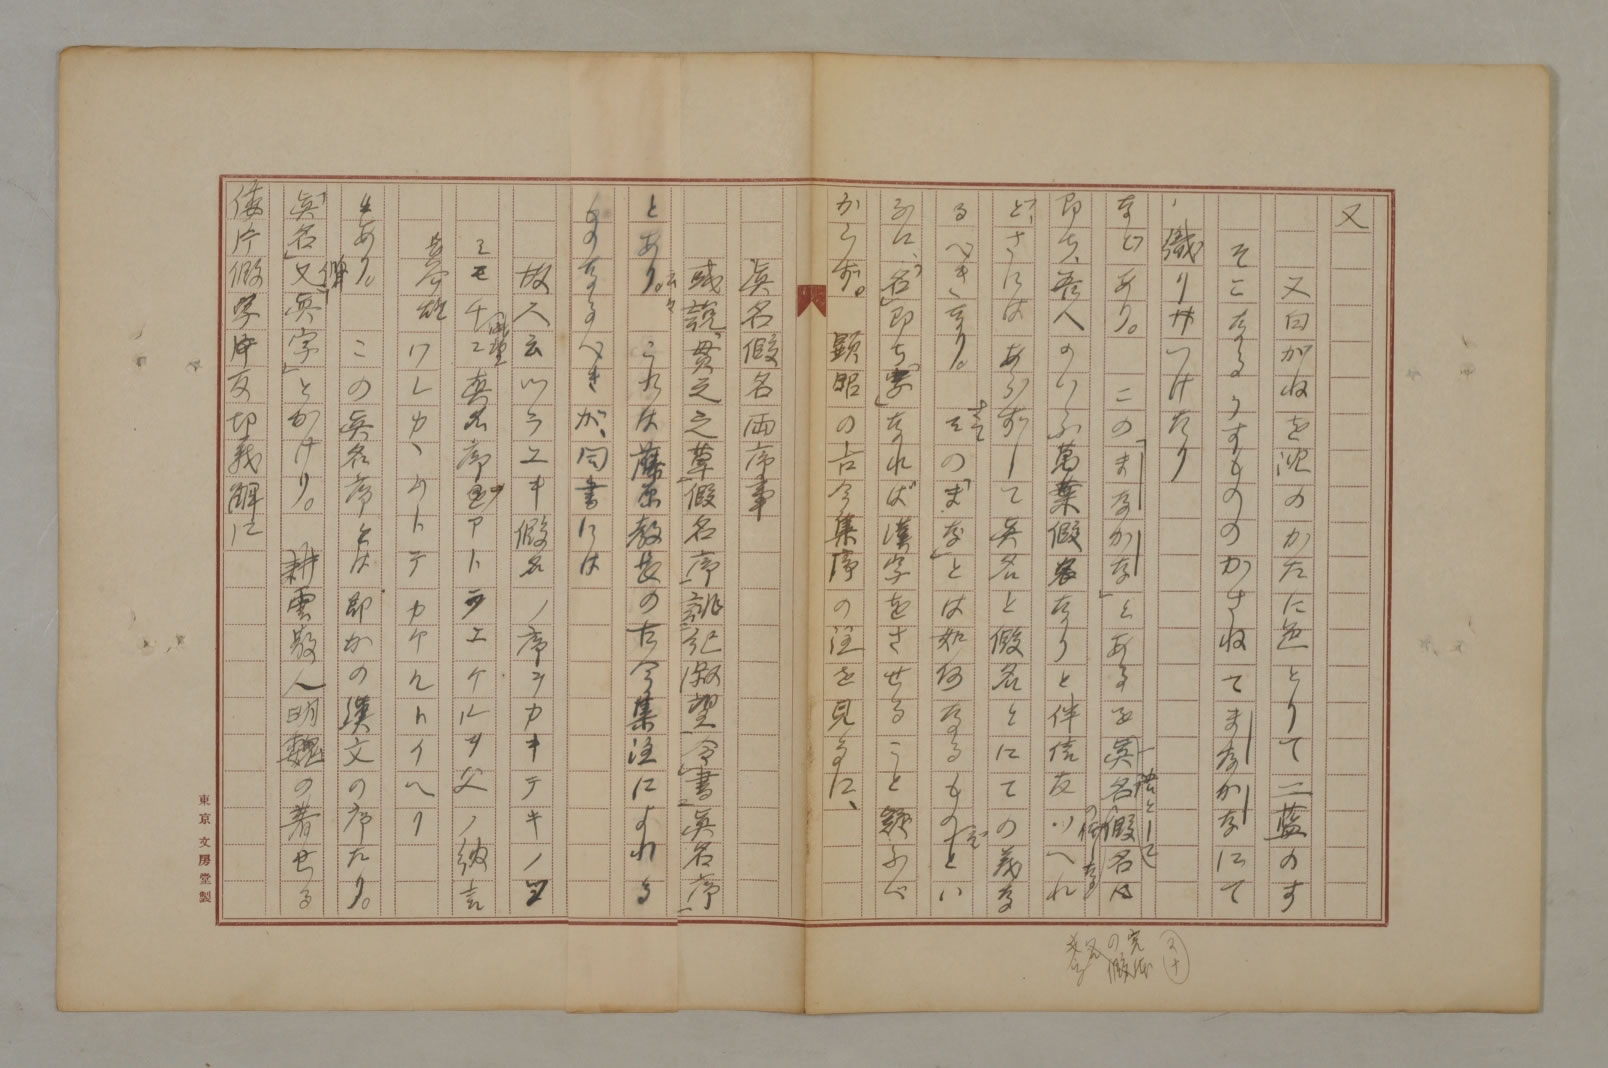 又
又白がねを沈のかたに逸とりて二藍のす
そこなるうすもののかさねてまなかなにて
織りかつけたり
などあり。このまなかな」とあるを眞名假名は
即ち、吾人のいふ萬葉假名なりと伴信友いへれ
ど、さにはあらずして眞名と假名とにての義な
るべきなり。さてその「まな」とは如何なるものぞとい
ふに、「名」即ち「字」なれば漢字をさせること疑ふべ
からず。顕昭の古今集序の注を見るに、
眞名假名両序事
或説、貫之之草假名序、誂紀淑望、令書眞名序云々
とあり。これは藤原教長の古今集注によれる
ものなるべきが、同書には
故人云ツラユキ假名ノ序ヲカキテキノヨ
シモチニ淑望眞名序カケトアトラエケルヲ父ノ納言
長谷雄ワレカヽムトテカケルトイヘリ
とあり。この眞名序とは即かの漢文の序たり。
「眞名」又「眞字」とかけり。耕雲散人明魏の著せる
倭片假字反切義解に
東京文房堂製